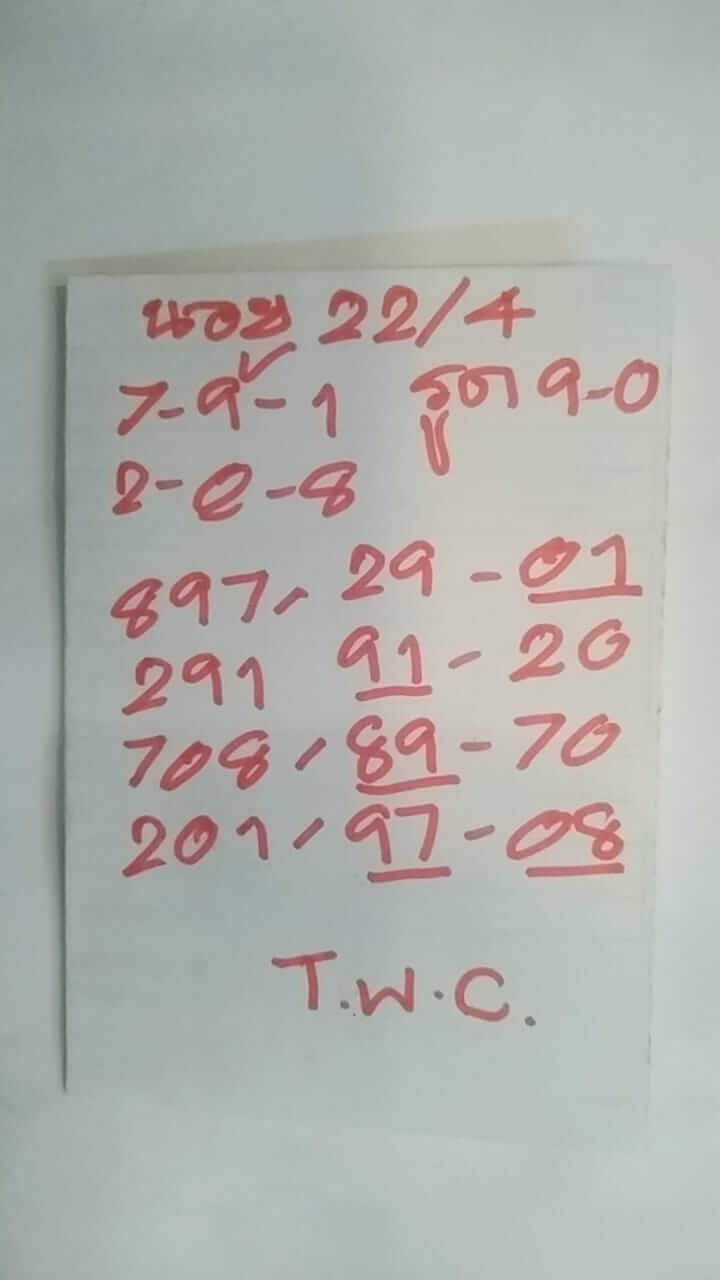 นอย 22/4
7-9-1 รูด 9-0
2-0-8
897, 29 - 01
291 91 - 20
708, 89 - 70
201, 97 - 08
T.W.C.